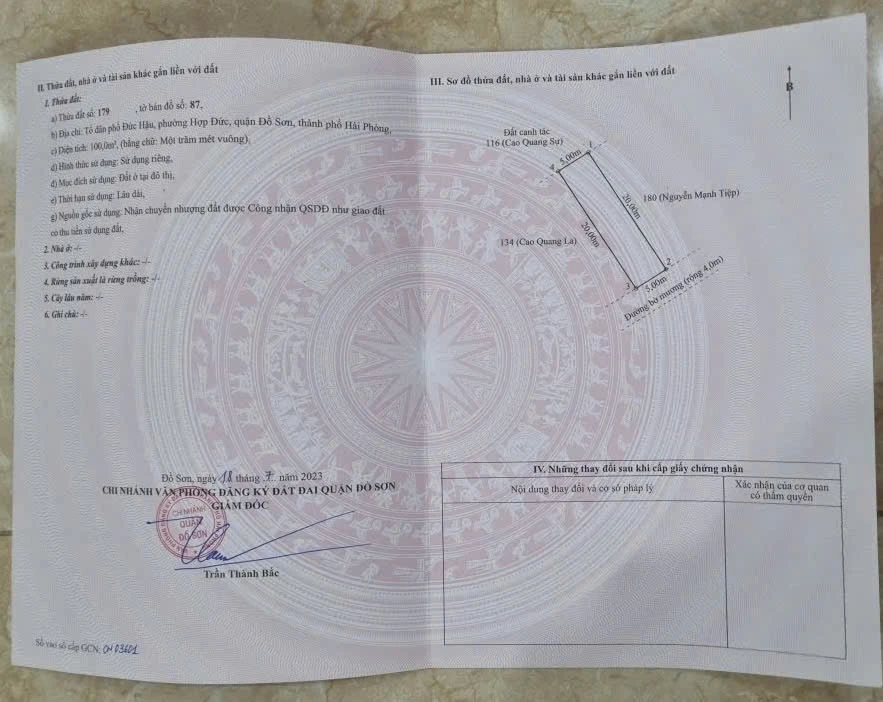 II. Thửa đất, nhà ở và tài sản khác gắn liền với đất
1. Thửa đất:
a) Thửa đất số: 179 , tờ bản đồ số: 87,
b) Địa chỉ: Tổ dân phố Đức Hậu, phường Hợp Đức, quận Đồ Sơn, thành phố Hải Phòng,
c) Diện tích: 100,0m², (bằng chữ: Một trăm mét vuông),
d) Hình thức sử dụng: Sử dụng riêng,
đ) Mục đích sử dụng: Đất ở tại đô thị,
e) Thời hạn sử dụng: Lâu dài,
g) Nguồn gốc sử dụng: Nhận chuyển nhượng đất được Công nhận QSDĐ như giao đất
có thu tiền sử dụng đất,
2. Nhà ở: -/-
3. Công trình xây dựng khác: -/-
4. Rừng sản xuất là rừng trồng: -/-
5. Cây lâu năm: -/-
6. Ghi chú: -/-
Đồ Sơn, ngày 18 tháng 7 năm 2023
CHI NHÁNH VĂN PHÒNG ĐĂNG KÝ ĐẤT ĐAI QUẬN ĐỒ SƠN
GIÁM ĐỐC
CHI NHÁNH
QUẬN
ĐỒ SƠN
Trần Thánh Bắc
Số vào sổ cấp GCN: CH 03601
III. Sơ đồ thửa đất, nhà ở và tài sản khác gắn liền với đất
B
Đất canh tác
116 (Cao Quang Sự)
1
5,00m
4
20,00m
180 (Nguyễn Mạnh Tiệp)
20,00m
134 (Cao Quang La)
2
3
5,00m
Đường bờ mương (rộng 4,0m)
IV. Những thay đổi sau khi cấp giấy chứng nhận
Nội dung thay đổi và cơ sở pháp lý
Xác nhận của cơ quan
có thẩm quyền